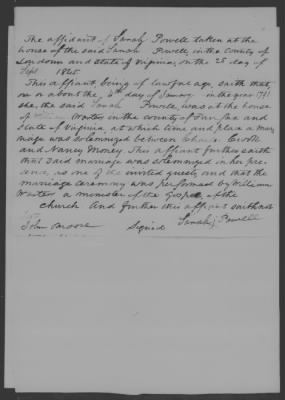 The affidavit of Sarah Powell taken at the
house of the said Sarah Powell, in the county of
Loudoun and State of Virginia, on the 25 day of
Sept 1845
This affiant, being of lawful age, saith that
on or about the day of January in the year 1791
she, the said Sarah Powell, was at the house
of in the county of Fairfax and
State of Virginia, at which time and place a mar
riage was solemnized between
and Nancy Money. This affiant further saith
that said marriage was solemnized in her pre
sence, as one of the invited guests, and that the
marriage ceremony was performed by William
a minister of the Gospel of the
Church And further this affiant saith not
John Signed Sarah Powell